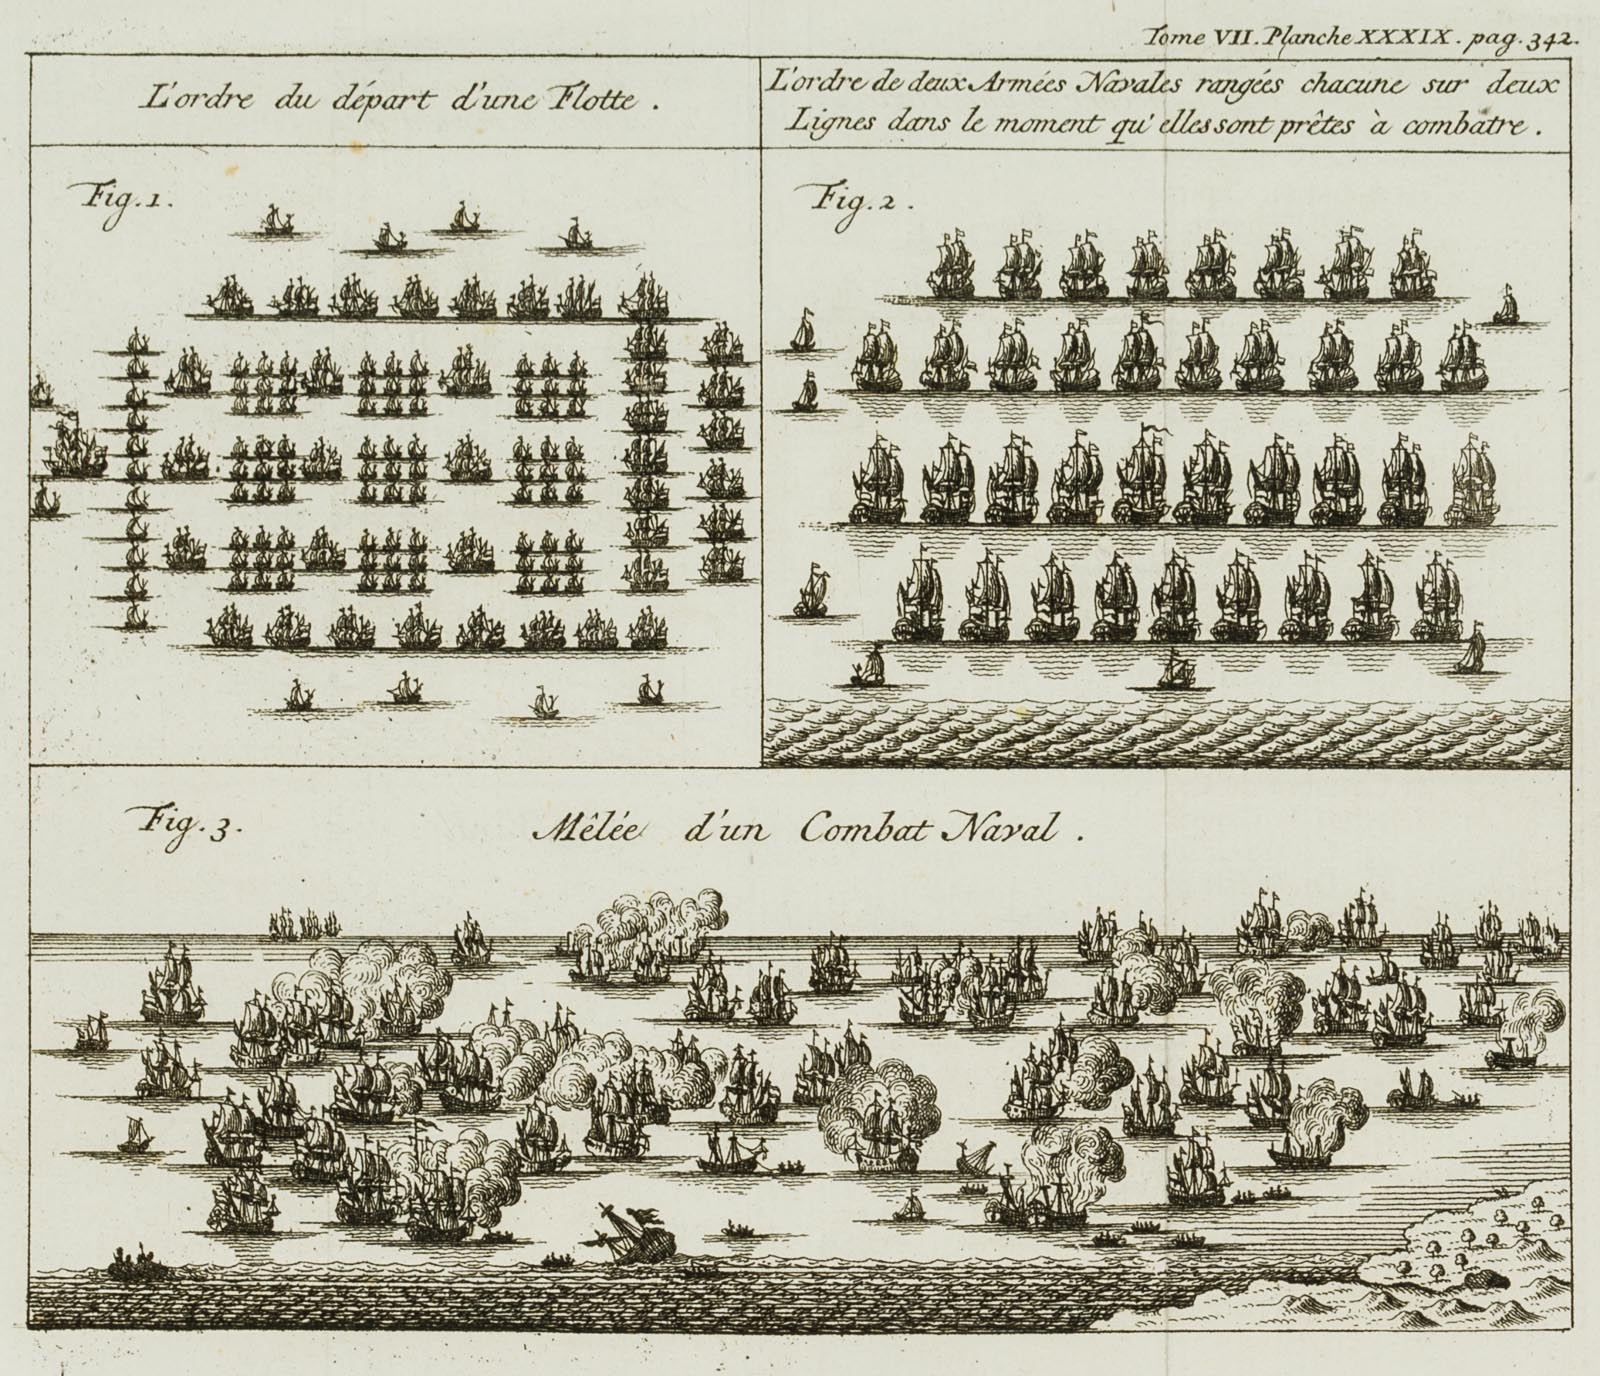 Tome VII. Planche XXXIX. pag. 342.
L'ordre du départ d'une Flotte.
L'ordre de deux Armées Navales rangées chacune sur deux
Lignes dans le moment qu'elles sont prêtes à combatre.
Fig. 1.
Fig. 2.
Fig. 3.
Mêlée d'un Combat Naval.